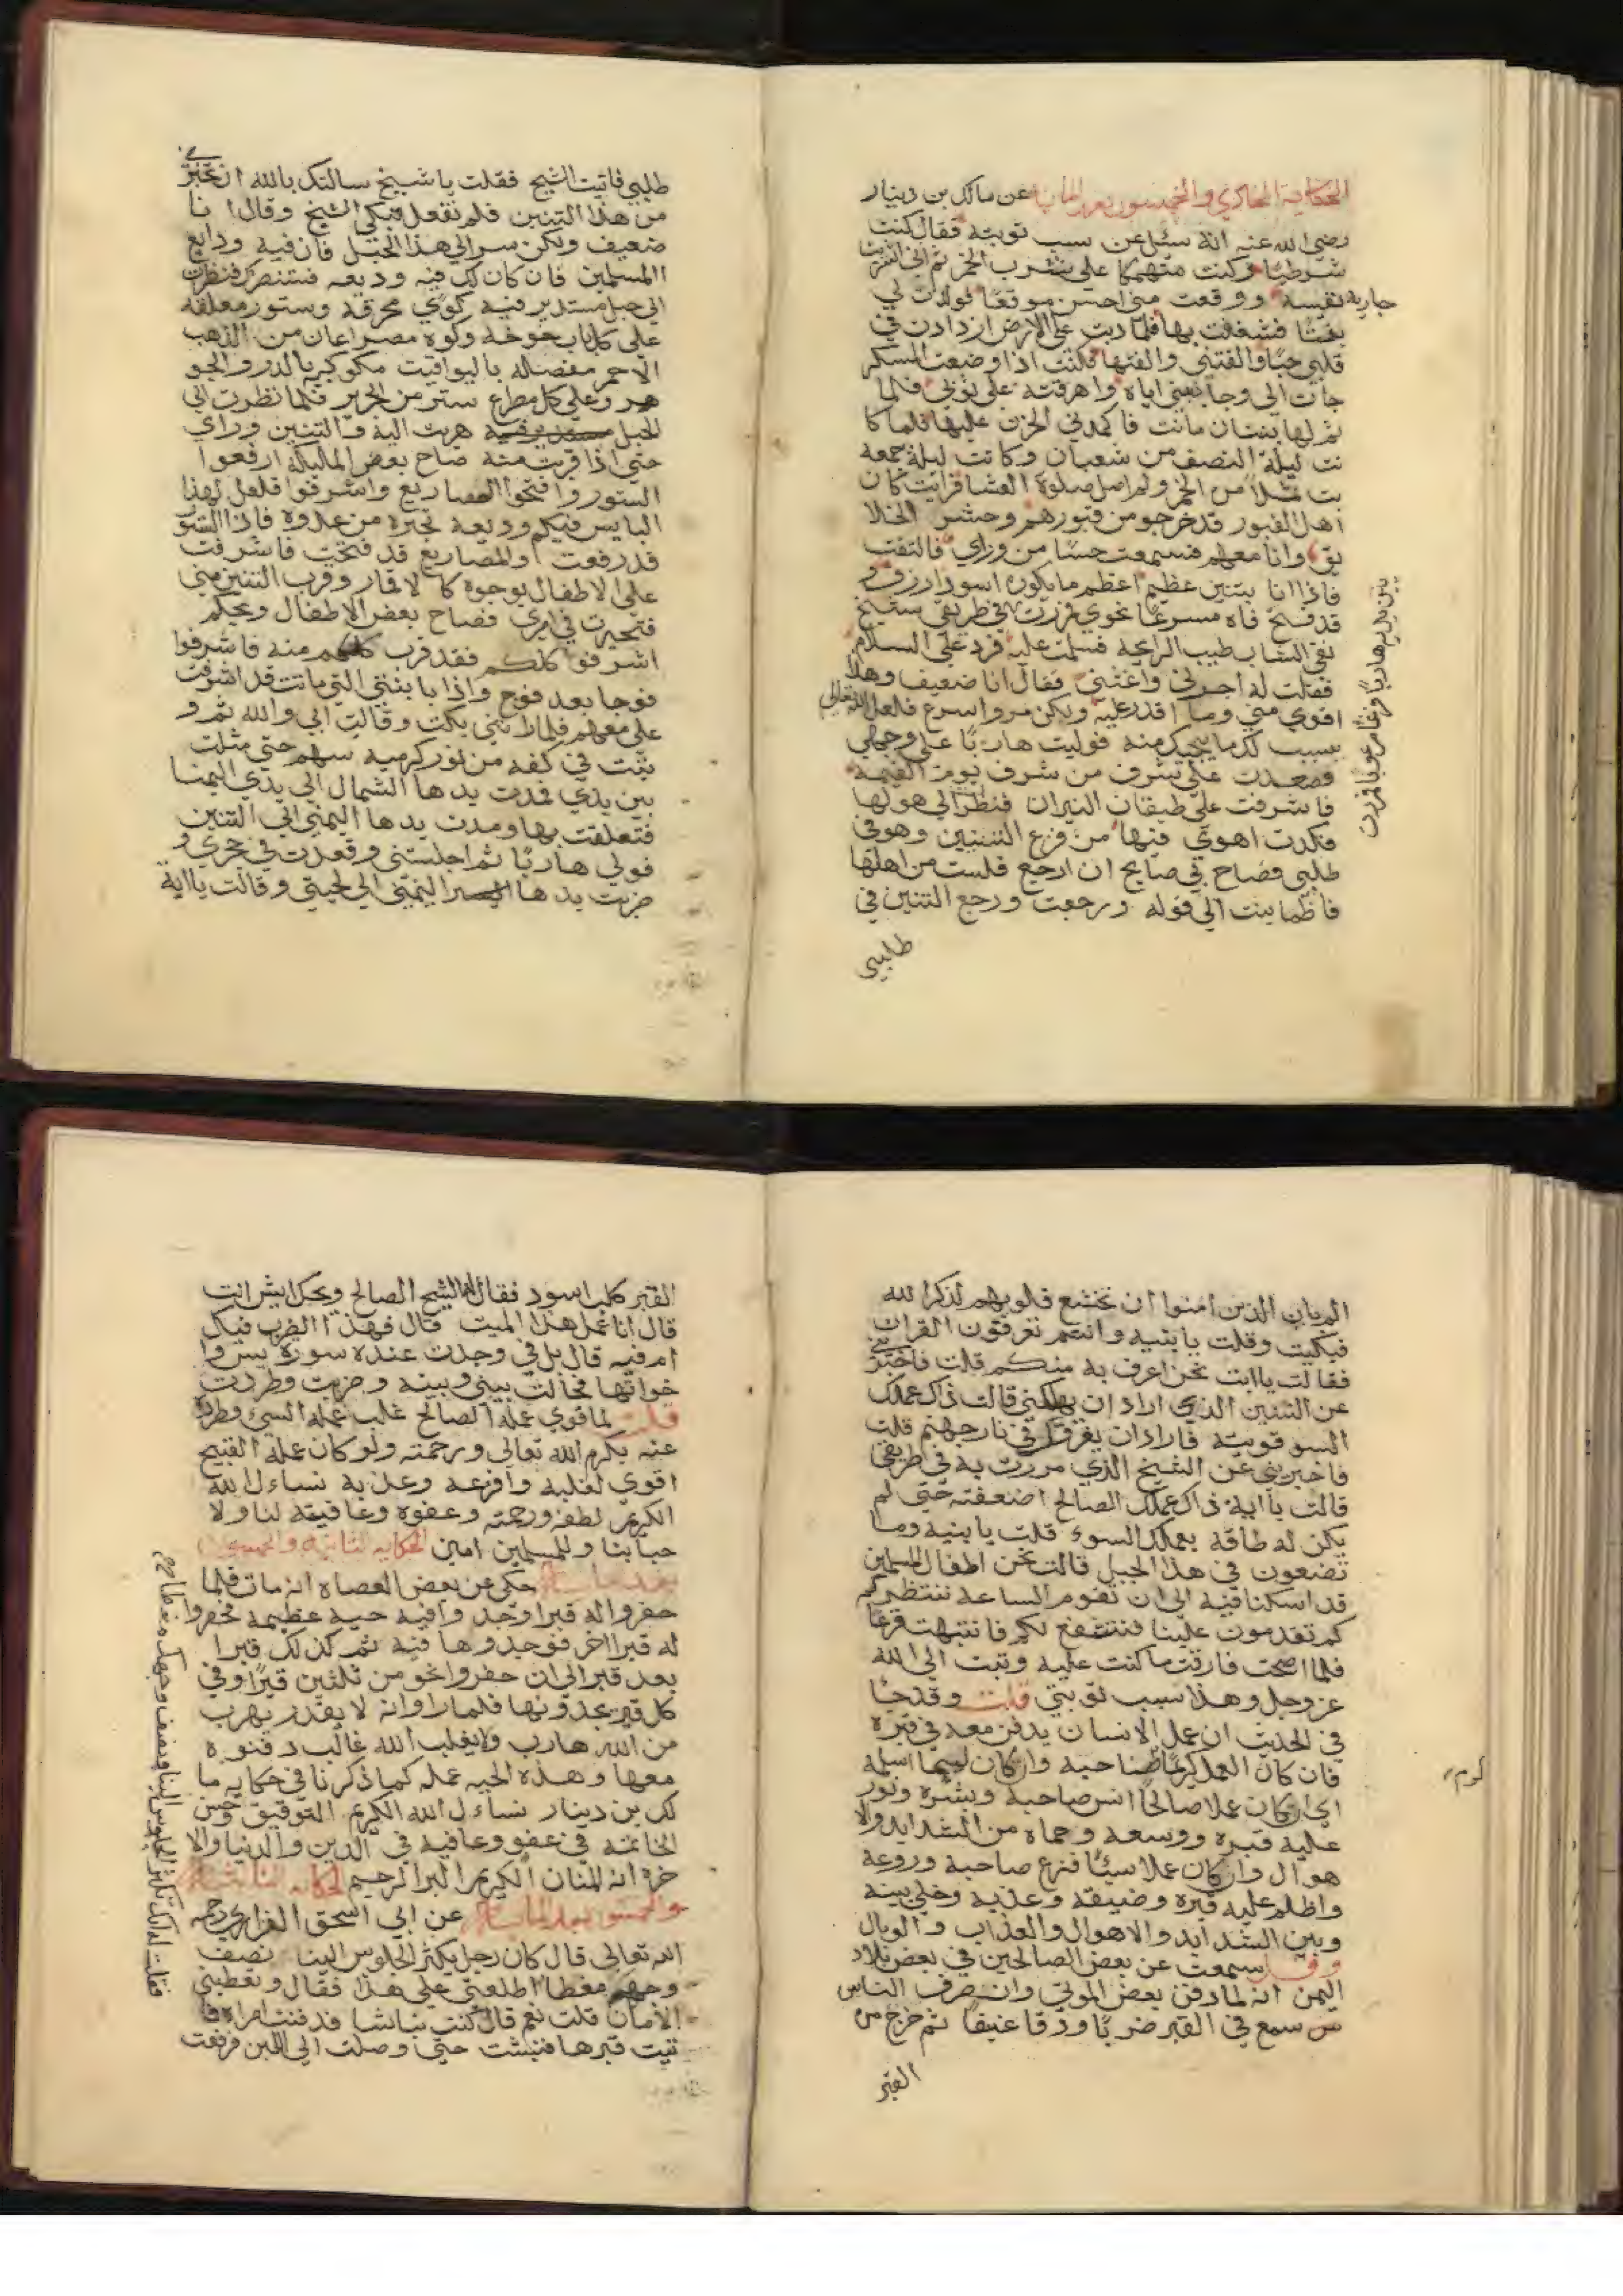 الحكاية الحادي والخمسون بعد المائة عن مالك بن دينار
رضي الله عنه انه سئل عن سبب توبته فقال كنت
شرطيا وكنت منهمكا على شرب الخمر ثم اني اشتريت
جارية نفيسة ووقعت مني احسن موقعا فولدت لي
بنتا فشغفت بها فلما دبت على الارض ازدادت في
قلبي حبا والفتني والفتها فكنت اذا وضعت المسكر
جات الي وجاذبتني اياه واهرقته على ثوبي فلما
تم لها سنتان ماتت فاكمدني الحزن عليها فلما كا
نت ليلة النصف من شعبان وكانت ليلة جمعة
بت ثملا من الخمر ولم اصل صلوة العشا فرايت كان
اهل القبور قد خرجو من قبورهم وحشر الخلا
يق وانا معهم فسمعت حسا من وراي فالتفت
فاذا انا بتنين عظيم اعظم ما يكون اسود ازرق و
قد فتح فاه مسرعا نحوي فررت في طريقي بشيخ
نقي الثياب طيب الرايحة فسلمت عليه فرد علي السلام
فقلت له اجرني واغثني فقال انا ضعيف وهذا
اقوي مني وما اقدر عليه ولكن مر واسرع فلعل الله تعالى
يسبب لك ما ينجيك منه فوليت هاربا على وجهي
فصعدت على شرف من شرف يوم القيمة
فاشرفت على طبقات النيران فنظرت الي هولها
فكدت اهوي فيها من فزع التنين وهو في
طلبي فصاح بي صايح ان ارجع فلست من اهلها
فاطمانيت الي قوله ورجعت ورجع التنين في
طلبي
بين يديه هاربا فزعا مرعوبا فمررت
طلبي فاتيت الشيخ فقلت يا شيخ سالتك بالله ان تجيرني
من هذا التنين فلم تفعل فبكي الشيخ وقال انا
ضعيف ولكن سر الي هذا الجبل فان فيه ودايع
المسلمين فان كان لك فيه وديعه فستنصرك فنظرت
الي جبل مستدير فيه كوي مخرقة وستور معلقة
على كل باب خوخة وكوة مصراعان من الذهب
الاحمر مفصلة باليواقيت مكوكبة بالدرر والجو
هر وعلى كل مصراع ستر من الحرير فلما نظرت الي
الجبل هربت اليه والتنين وراي
حتي اذا قربت منه صاح بعض الملايكة ارفعوا
الستور وافتحوا المصاريع واشرفوا فلعل لهذا
البايس فيكم وديعة تجيره من عدوه فاذا الستور
قد رفعت والمصاريع قد فتحت فاشرفت
على الاطفال بوجوه كالاقمار وقرب التنين مني
فتحيرت في امري فصاح بعض الاطفال ويحكم
اشرفو كلكم فقد قرب منه فاشرفوا
فوجا بعد فوج واذا با بنتي التي ماتت قد اشرفت
علي معهم فلما راتني بكت وقالت ابي والله ثم و
ثبت في كفة من نور كرمية سهم حتي مثلت
بين يدي فمدت يدها الشمال الي يدي اليمنا
فتعلقت بها ومدت يدها اليمني الي التنين
فولي هاربا ثم اجلستني وقعدت في حجري و
ضربت يدها اليمني الي لحيتي وقالت يا ابة
الم يان الذين امنوا ان تخشع قلوبهم لذكر الله
فبكيت وقلت يا بنية وانتم تعرفون القران
فقالت يا ابت نحن اعرف به منكم قلت فاخبريني
عن التنين الذي اراد ان يهلكني قالت ذاك عملك
السو قويته فاراد ان يغرقك في نار جهنم قلت
فاخبريني عن الشيخ الذي مررت به في طريقي
قالت يا ابة ذاك عملك الصالح اضعفته حتي لم
يكن له طاقة بعملك السوء قلت يا بنية وما
تصنعون في هذا الجبل قالت نحن اطفال المسلمين
قد اسكنا فيه الي ان تقوم الساعة ننتظركم
كم تقدمون علينا فنشفع لكم فانتبهت فزعا
فلما اصبحت فارقت ما كنت عليه وتبت الي الله
عز وجل وهذا سبب توبتي قلت وقد جا
في الحديث ان عمل الانسان يدفن معه في قبره
فان كان العمل كريما اكرم صاحبه وان كان ليما اسلمه
اي ان كان عملا صالحا انس صاحبه وبشره ونور
عليه قبره ووسعه وحماه من الشدايد والا
هوال وان كان عملا سيئا فزع صاحبه وروعه
واظلم عليه قبره وضيقه وعذبه وخلي بينه
وبين الشدايد والاهوال والعذاب والوبال
وقد سمعت عن بعض الصالحين في بعض بلاد
اليمن انه لما دفن بعض الموتي وانصرف الناس
سمع في القبر ضربا ودقا عنيفا ثم خرج من
القبر
القبر كلب اسود فقال له الشيخ الصالح ويحك ايش انت
قال انا عمل هذا الميت قال فهذا الضرب فيك
ام فيه قال بل في وجدت عنده سورة يس وا
خواتها فحالت بيني وبينه وضربت وطردت
قلت لما قوي عمله الصالح غلب عمله السيئ وطرده
عنه بكرم الله تعالى ورحمته ولو كان عمله القبيح
اقوي لغلبه وافزعه وعذبه نساءل الله
الكريم لطفه ورحمته وعفوه وعافيته لنا ولا
حبابنا وللمسلمين امين الحكاية الثانية والخمسون
بعد المائة حكي عن بعض العصاة انه مات فلما
حفروا له قبرا وجدوا فيه حية عظيمة فحفروا
له قبرا اخر فوجدوها فيه ثم كذلك قبرا
بعد قبر الي ان حفروا نحو من ثلثين قبرا وفي
كل قبر يجدونها فلما راوا انه لا يقدر يهرب
من الله هارب ولا يغلب الله غالب دفنوه
معها وهذه الحية عمله كما ذكرنا في حكاية ما
لك بن دينار نساءل الله الكريم التوفيق وحسن
الخاتمة في عفو وعافية في الدين والدنيا والا
خرة انه المنان الكريم البر الرحيم الحكاية الثالثة
والخمسون بعد المائة عن ابي اسحق الفزاري رحمه
الله تعالى قال كان رجل يكثر الجلوس الينا نصف
وجهه مغطا اطلعني على هذا فقال وتعطيني
الامان قلت نعم قال كنت نباشا فدفنت امراة فا
تيت قبرها فنبشت حتي وصلت الي اللبن فرفعت
فقلت له انك تكثر الجلوس الينا ونصف وجهك مغطا